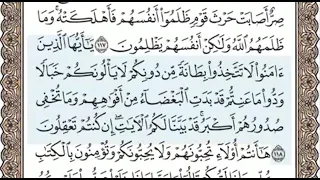 صِرٌّ أَصَابَتْ حَرْثَ قَوْمٍ ظَلَمُوٓا۟ أَنفُسَهُمْ فَأَهْلَكَتْهُ ۚ وَمَا
ظَلَمَهُمُ ٱللَّهُ وَلَٰكِنْ أَنفُسَهُمْ يَظْلِمُونَ ١١٧ يَٰٓأَيُّهَا ٱلَّذِينَ
ءَامَنُوا۟ لَا تَتَّخِذُوا۟ بِطَانَةً مِّن دُونِكُمْ لَا يَأْلُونَكُمْ خَبَالًا
وَدُّوا۟ مَا عَنِتُّمْ قَدْ بَدَتِ ٱلْبَغْضَآءُ مِنْ أَفْوَٰهِهِمْ وَمَا تُخْفِى
صُدُورُهُمْ أَكْبَرُ ۚ قَدْ بَيَّنَّا لَكُمُ ٱلْءَايَٰتِ ۖ إِن كُنتُمْ تَعْقِلُونَ ١١٨
هَٰٓأَنتُمْ أُو۟لَآءِ تُحِبُّونَهُمْ وَلَا يُحِبُّونَكُمْ وَتُؤْمِنُونَ بِٱلْكِتَٰبِ